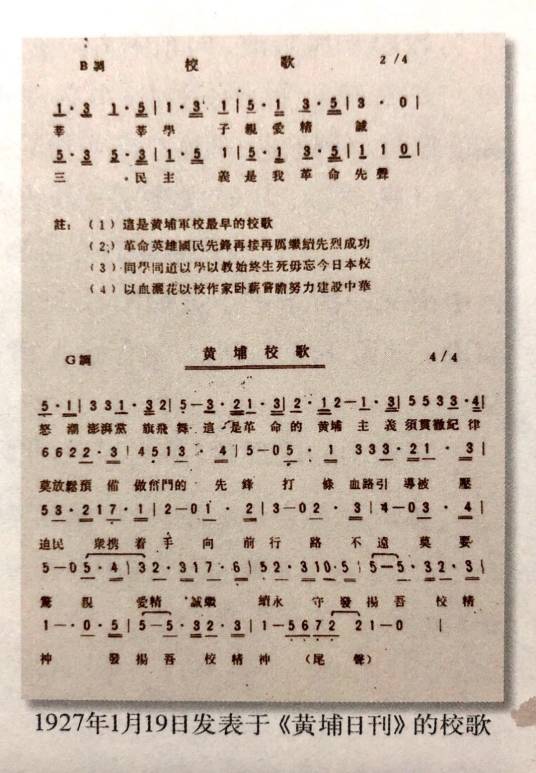 B調 校歌 2/4
1·3 1·5|1·3 1|5·1 3·5|3·0|
莘 莘學 子親愛精 誠
5·3 5·3|1·5 1|5·1 3·5|1 1 0|
三 ·民主 義是我革命先聲
註:(1)這是黄埔軍校最早的校歌
(2)革命英雄國民先鋒再接再厲繼續先烈成功
(3)同學同道以學以教始終生死毋忘今日本校
(4)以血灑花以校作家卧薪嘗膽努力建設中華
G調 黄埔校歌 4/4
5·1|3 3 1·3 2|5-3·2 1·3|2·1 2-1·3|5 5 3 3·4|
怒潮澎湃黨旗飛舞這是革命的黄埔主義須貫徹紀律
6 6 2 2·3|4 5 1 3·4|5-0 5·1 3 3 3·2 1·3|
莫放鬆預備做奮鬥的先鋒打條血路引導被壓
5 3·2 1 7·1|2-0 1·2|3-0 2·3|4-0 3·4|
迫民衆携着手向前行路不遠莫要
5-0 5·4|3 2·3 1 7·6|5 2·3 1 0·5|5-5·3 2·3|
驚親愛精誠繼續永守發揚吾校精
1-·0·5|5-5·3 2·3|1-5 6 7 2 2 1-0|
神發揚吾校精神(尾聲)
1927年1月19日发表于《黄埔日刊》的校歌